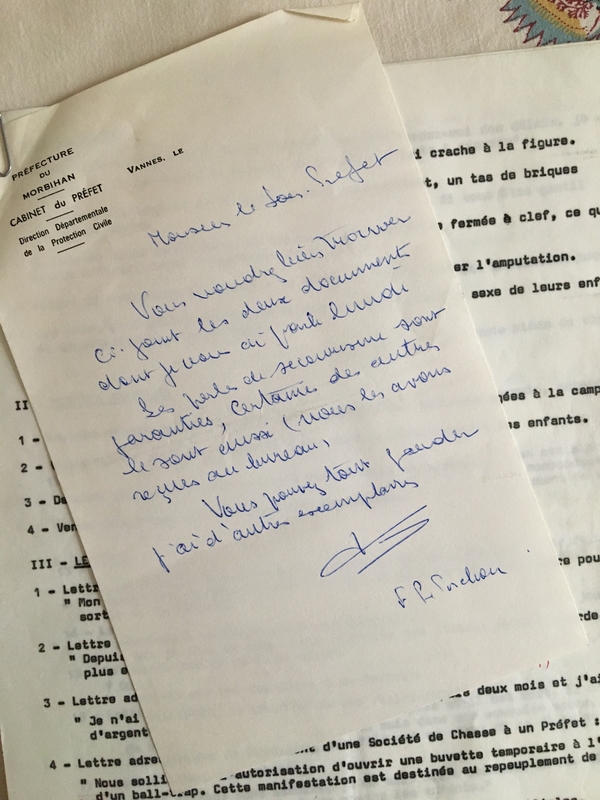 PRÉFECTURE
DU
MORBIHAN
CABINET du PRÉFET
Direction Départementale
de la Protection Civile
VANNES, LE
Monsieur le Sous-Préfet
Vous voudrez bien trouver
ci-joint les deux documents
dont je vous ai parlé lundi
Les perles de secourisme sont
garanties, certaines des autres
le sont aussi (nous les avons
reçues au bureau)
Vous pouvez tout garder
j'ai d'autres exemplaires
i crache à la figure.
t, un tas de briques
fermée à clef, ce qu
er l'amputation.
sexe de leurs enf
II
ées à la camp
1 -
s enfants.
2 -
3 - De
4 - Ver
III - LE
1 - Lettr
" Mon
sort
2 - Lettre
" Depui
plus e
3 - Lettre ad
deux mois et j'ai
" Je n'ai
d'argent
4 - Lettre adre
t d'une Société de Chasse à un Préfet :
" Nous solli
autorisation d'ouvrir une buvette temporaire à l'
d'un ball-trap. Cette manifestation est destinée au repeuplement de